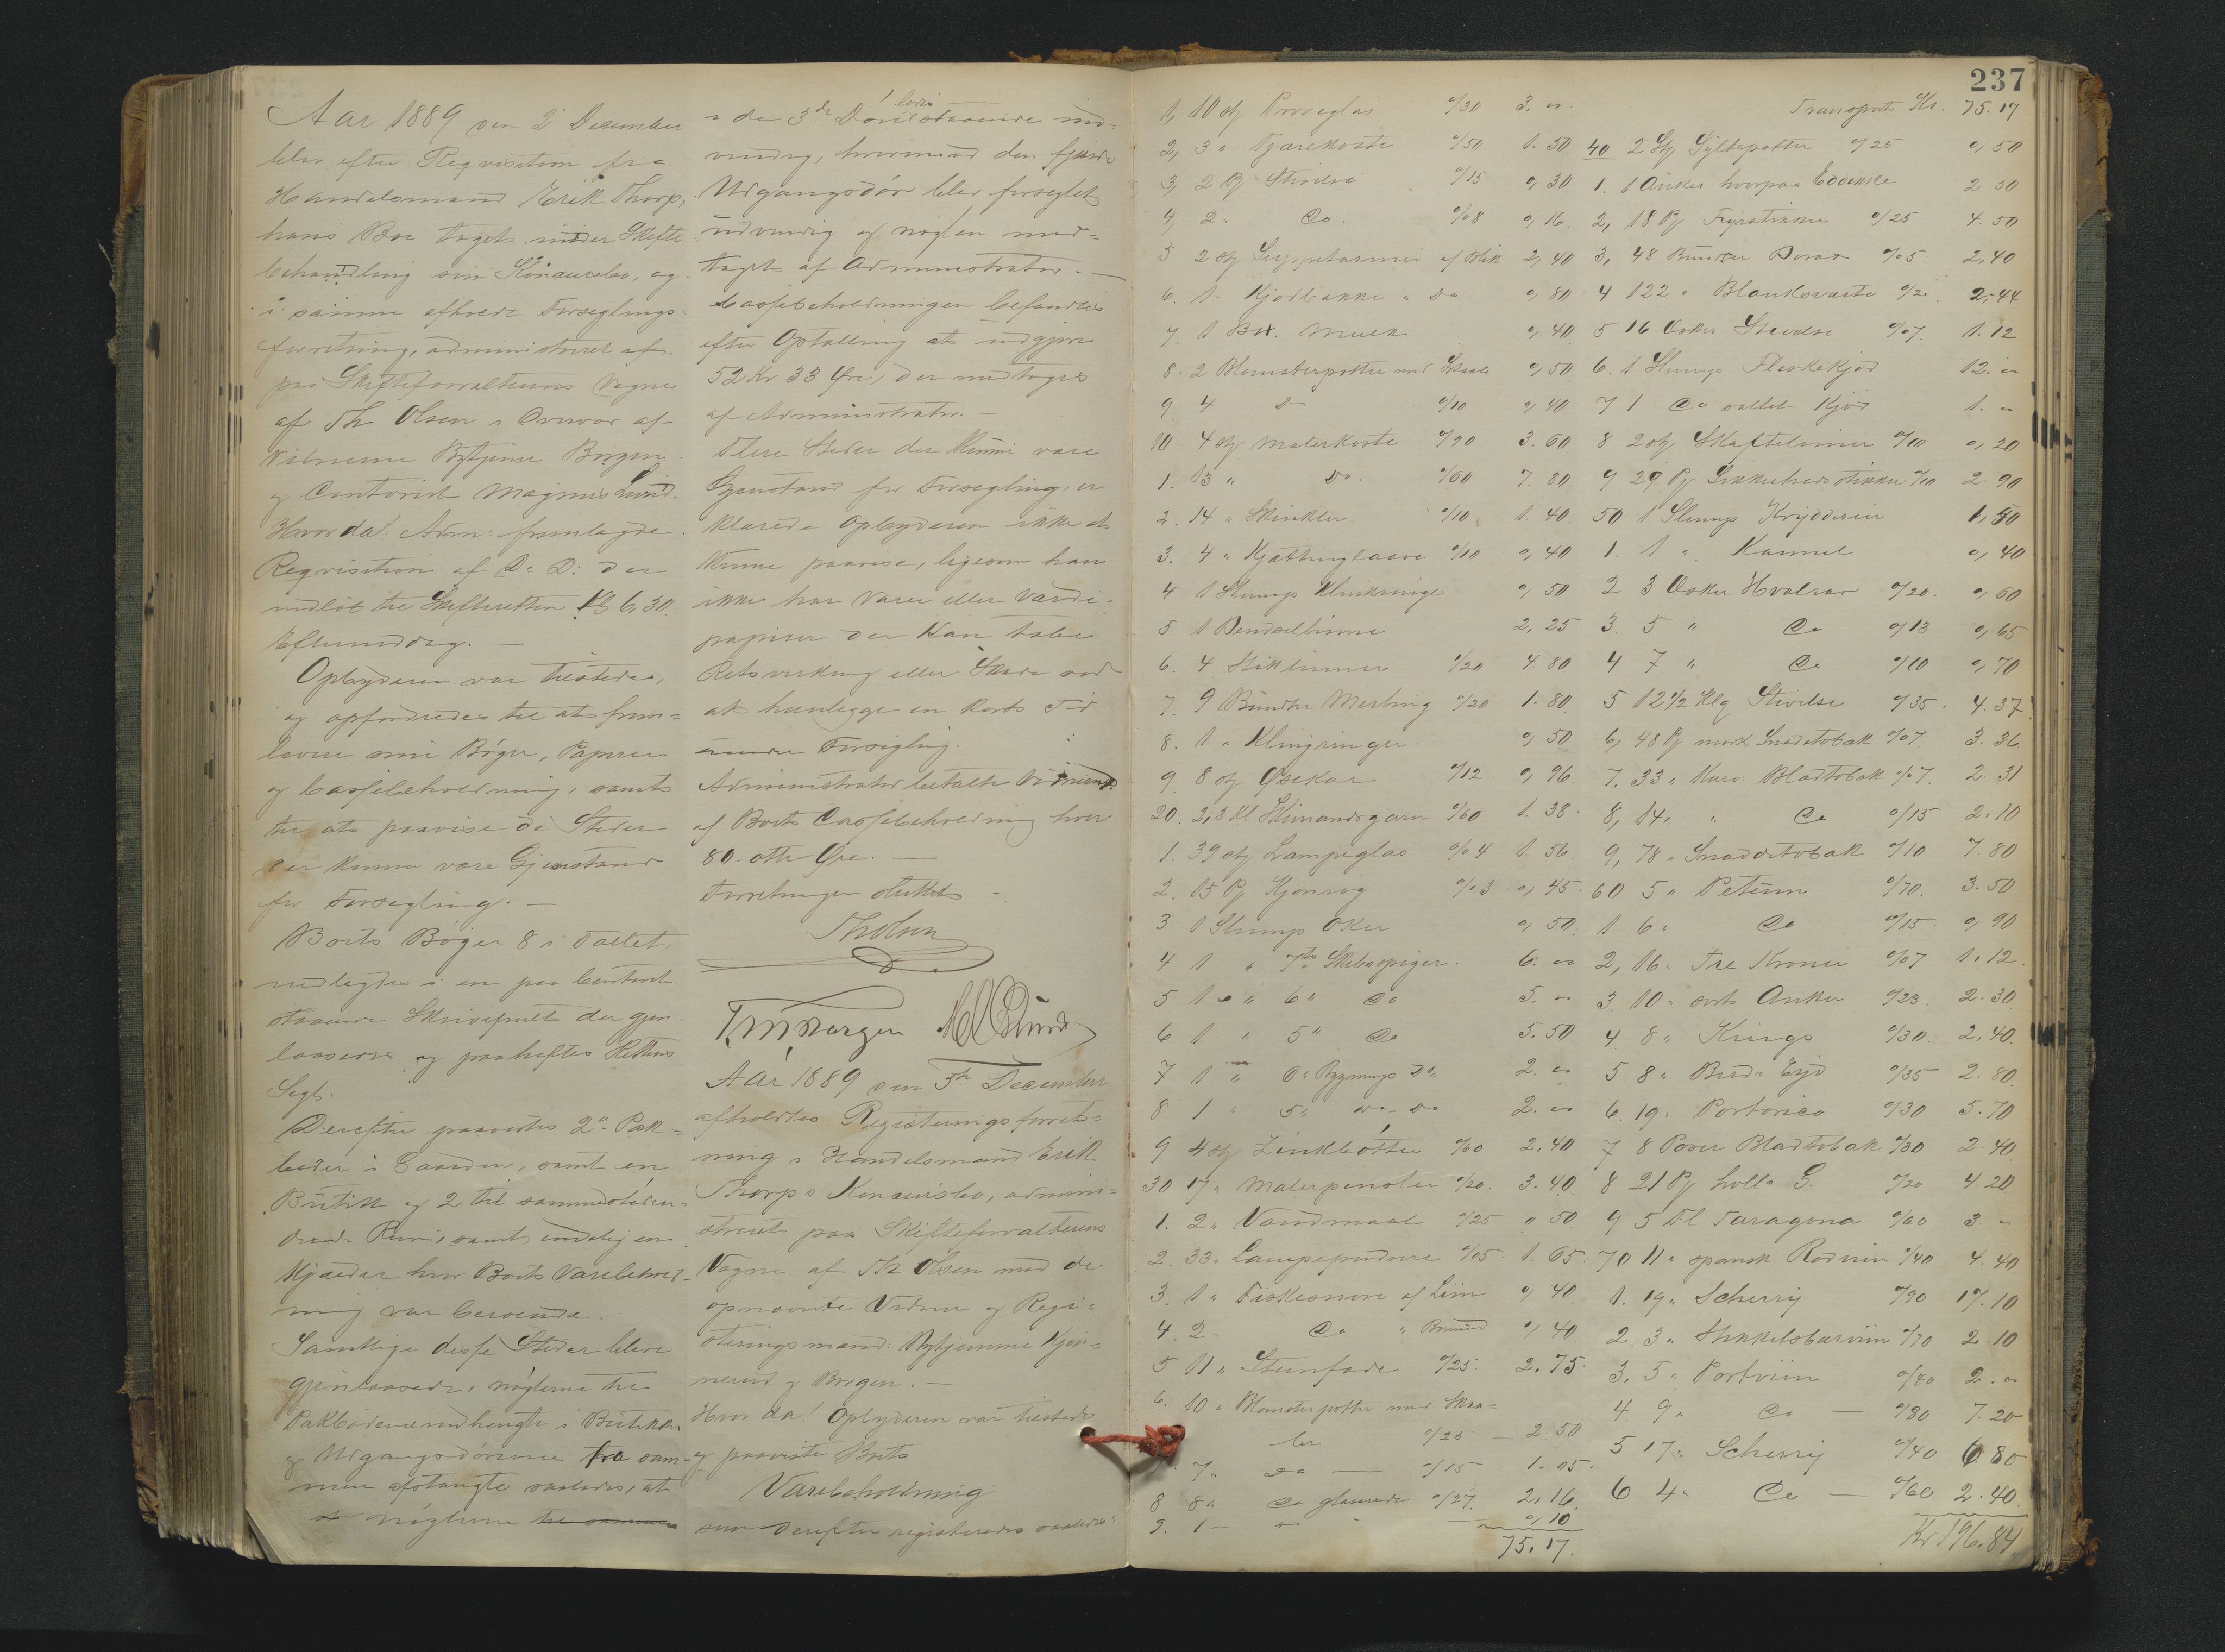 Aar 1889 den 2 December
blev efter Reqvisition fra
Handelsmand Erik Thorp,
hans Bo taget under Skifte
behandling som Konkursbo, og
i samme afholdt Forseglings
forretning, administreret af
paa Skifteforvalterens Vegne
af Th Olsen i Overvær af
Vidnerne Bytjener Borgen
og Contorist Magnus Lund.
Hvor da! Adm: fremlagde
Reqvisition af D. D: der
indløb til Skifteretten Kl 6,30
Eftermiddag. —
Opbyderen var tilstede,
og opfordredes til at frem=
levere sine Bøger, Papirer
og Cassebeholdning, samt
til at paavise de Steder
der kunne være Gjenstand
for Forsegling. —
Boets Bøger 8 i Tallet,
nedlagdes i en paa Contoret
staaende Skrivepult der gjen
laasedes og paaheftes Rettens
Segl.
Derefter paavistes 2 Pak=
boder i Gaarden, samt en
Butik og 2 til sammestøden=
de Rum, samt endelig en
Kjælder hvor Boets Varebehold=
ning var beroende.
Samtlige disse Steder bleve
gjenlaasede, nøglerne til
Pakboderne indhengte i Butikken
og Udgangsdørene fra sam=
men afstængte saaledes, at
nøglerne til samme
i de 3de Døre staaende ind=
vendig, hvorimod den fjerde
Udgangsdør blev forseglet
udvendig og nøglen med=
taget af Administrator. —
Cassebeholdningen befandtes
efter Optælling at udgjøre
52 Kr 33 Øre, der medtoges
af Administrator. —
Flere Steder der kunne være
Gjenstand for Forsegling, er
klærede Opbyderen ikke at
kunne paavise, ligesom han
ikke har Varer eller Værdi=
papirer der kan tabe
Retsvirkning eller Skade ved
at henlegge en kort Tid
under Forsegling.
Administrator betalte Vidnerne
af Boets Cassebeholdning hver
80 - otti Øre. —
Forretningen sluttet —
Th Olsen
T. M. Borgen M Lund
Aar 1889 den 3de December
afholdtes Registeringsforret=
ning i Handelsmand Erik
Thorps Konkursbo, admini=
streret paa Skifteforvalterens
Vegne af Th Olsen med de
opnævnte Vidner og Regi=
steringsmænd Bytjenerne Kjen=
nerud og Borgen. —
Hvor da! Opbyderen var tilstede
og paaviste Boets
Varebeholdning
som derefter registeredes saaledes:
237
1, 10 stk Prøveglas 0/30 3. 00
2, 3 " Tjærekoste 0/50 1. 50
3, 2 Pk Stivelse 0/15 0, 30
4, 2 " Do. 0/08 0, 16
5 2 stk af Blik 2, 40
6. 1 Kjødbakke " Do 0, 80
7. 1 0, 40
8. 2 Blomsterpotter med Skaale 0, 50
9 4 Do 0/10 0, 40
10 4 stk Malerkoste 0/90 3. 60
1. 13 " Do. 0/60 7. 80
2. 14 " Skinkler 0/10 1. 40
3. 4 " Kjættinglaase 0/10 0, 40
4 1 Slump Klinkringe 0, 50
5 1 Pendselline 2, 25
6. 4 Stikliner 1/20 4. 80
7. 9 Bundter Merling 0/20 1. 80
8. 1 " Klingringer 0, 50
9 8 stk Øsekar 0/12 0, 96
20. 2,3 Kl Skimandsgarn 0/60 1. 38
1. 39 stk Lampeglas 0/04 1. 56
2. 15 Pk Kjønrøg 0/03 0, 45
3 1 Slump Oker 0, 50
4 1 " 7" Skibsspiger 6. 00
5 1 " 6" Do 5. 00
6 1 " 5" Do 5. 50
7 1 " 6" Bygnings Do 2. 00
8 1 " 5" Do Do 2. 00
9 4 stk Zinkbøtter 0/60 2. 40
30 17 " Malerpensler 0/20 3. 40
1. 2 " Vandmaal 0/25 0 50
2. 33 " Lampepudsere 0/05 1. 65
3. 1 " Fiskesnøre af Liin 0, 40
4. 2 Do " Bomuld 0, 40
5 11 " Steenfade 0/25 2. 75
6. 10 " Blomsterpotter med Skaa=
ler 0/25 2. 50
7 " Do — 0/15 1. 05
8 8 " Do glaserede 0/27 2, 16
9. 1 — " 0, 10
75. 17.
Transport Kr. 75. 17
40 2 Stk Syltepotter 0/25 0, 50
1. 1 Anker hvorpaa Eddikke 2. 50
2, 18 Pk Fyrstikker 0/25 4. 50
3, 48 Bundter Dorer 0/05 2, 40
4 122 " Blanksværte 0/2 2, 44
5 16 Æsker Stivelse 0/07 1. 12
6. 1 Slump Fleskekjød 12. 00
7 1 Do saltet Kjød 1. 00
8 2 stk Skafteliiner 0/10 0, 20
9 29 Pk Sikkerhedsstikker 0/10 2. 90
50 1 Slump Krydderier 1, 50
1. 1 " Kannel 0, 40
2 3 Æsker Hvalrav 0/20 0, 60
3. 5 " Do 0/13 0, 65
4 7 " Do 0/10 0, 70
5 12 1/2 Klg Stivelse 0/35 4. 37
6, 48 Pk mørk Snadetobak 0/07 3. 36
7. 33 " Karv. Bladtobak 0/07 2. 31
8, 14, " Do 0/15 2. 10
9, 78 " Snadetobak 0/10 7. 80
60 5 " Petum 0/70 3. 50
1 6 " Do 0/15 0, 90
2, 16 " Tre Kroner 0/07 1. 12
3 10 " sort Anker 0/23 2. 30
4 8 " Krings 0/30 2. 40
5 8 " 0/35 2. 80
6. 19 " Portorico 0/30 5. 70
7 8 Poser Bladtobak 0/30 2 40
8 21 Pk holl. G. 0/20 4. 20
9 5 Fl Taragona 0/60 3. —
70 11 " spansk Rødvin 0/40 4. 40
1. 19 " Scherry 0/90 17. 10
2. 3 " Stikkelsbærviin 0/70 2 10
3. 5 " Portviin 0/40 2. 00
4. 9 " Do — 0/80 7. 20
5 17 " Scherry 0/40 6 80
6 4 " Do — 0/60 2. 40
Kr 196. 84